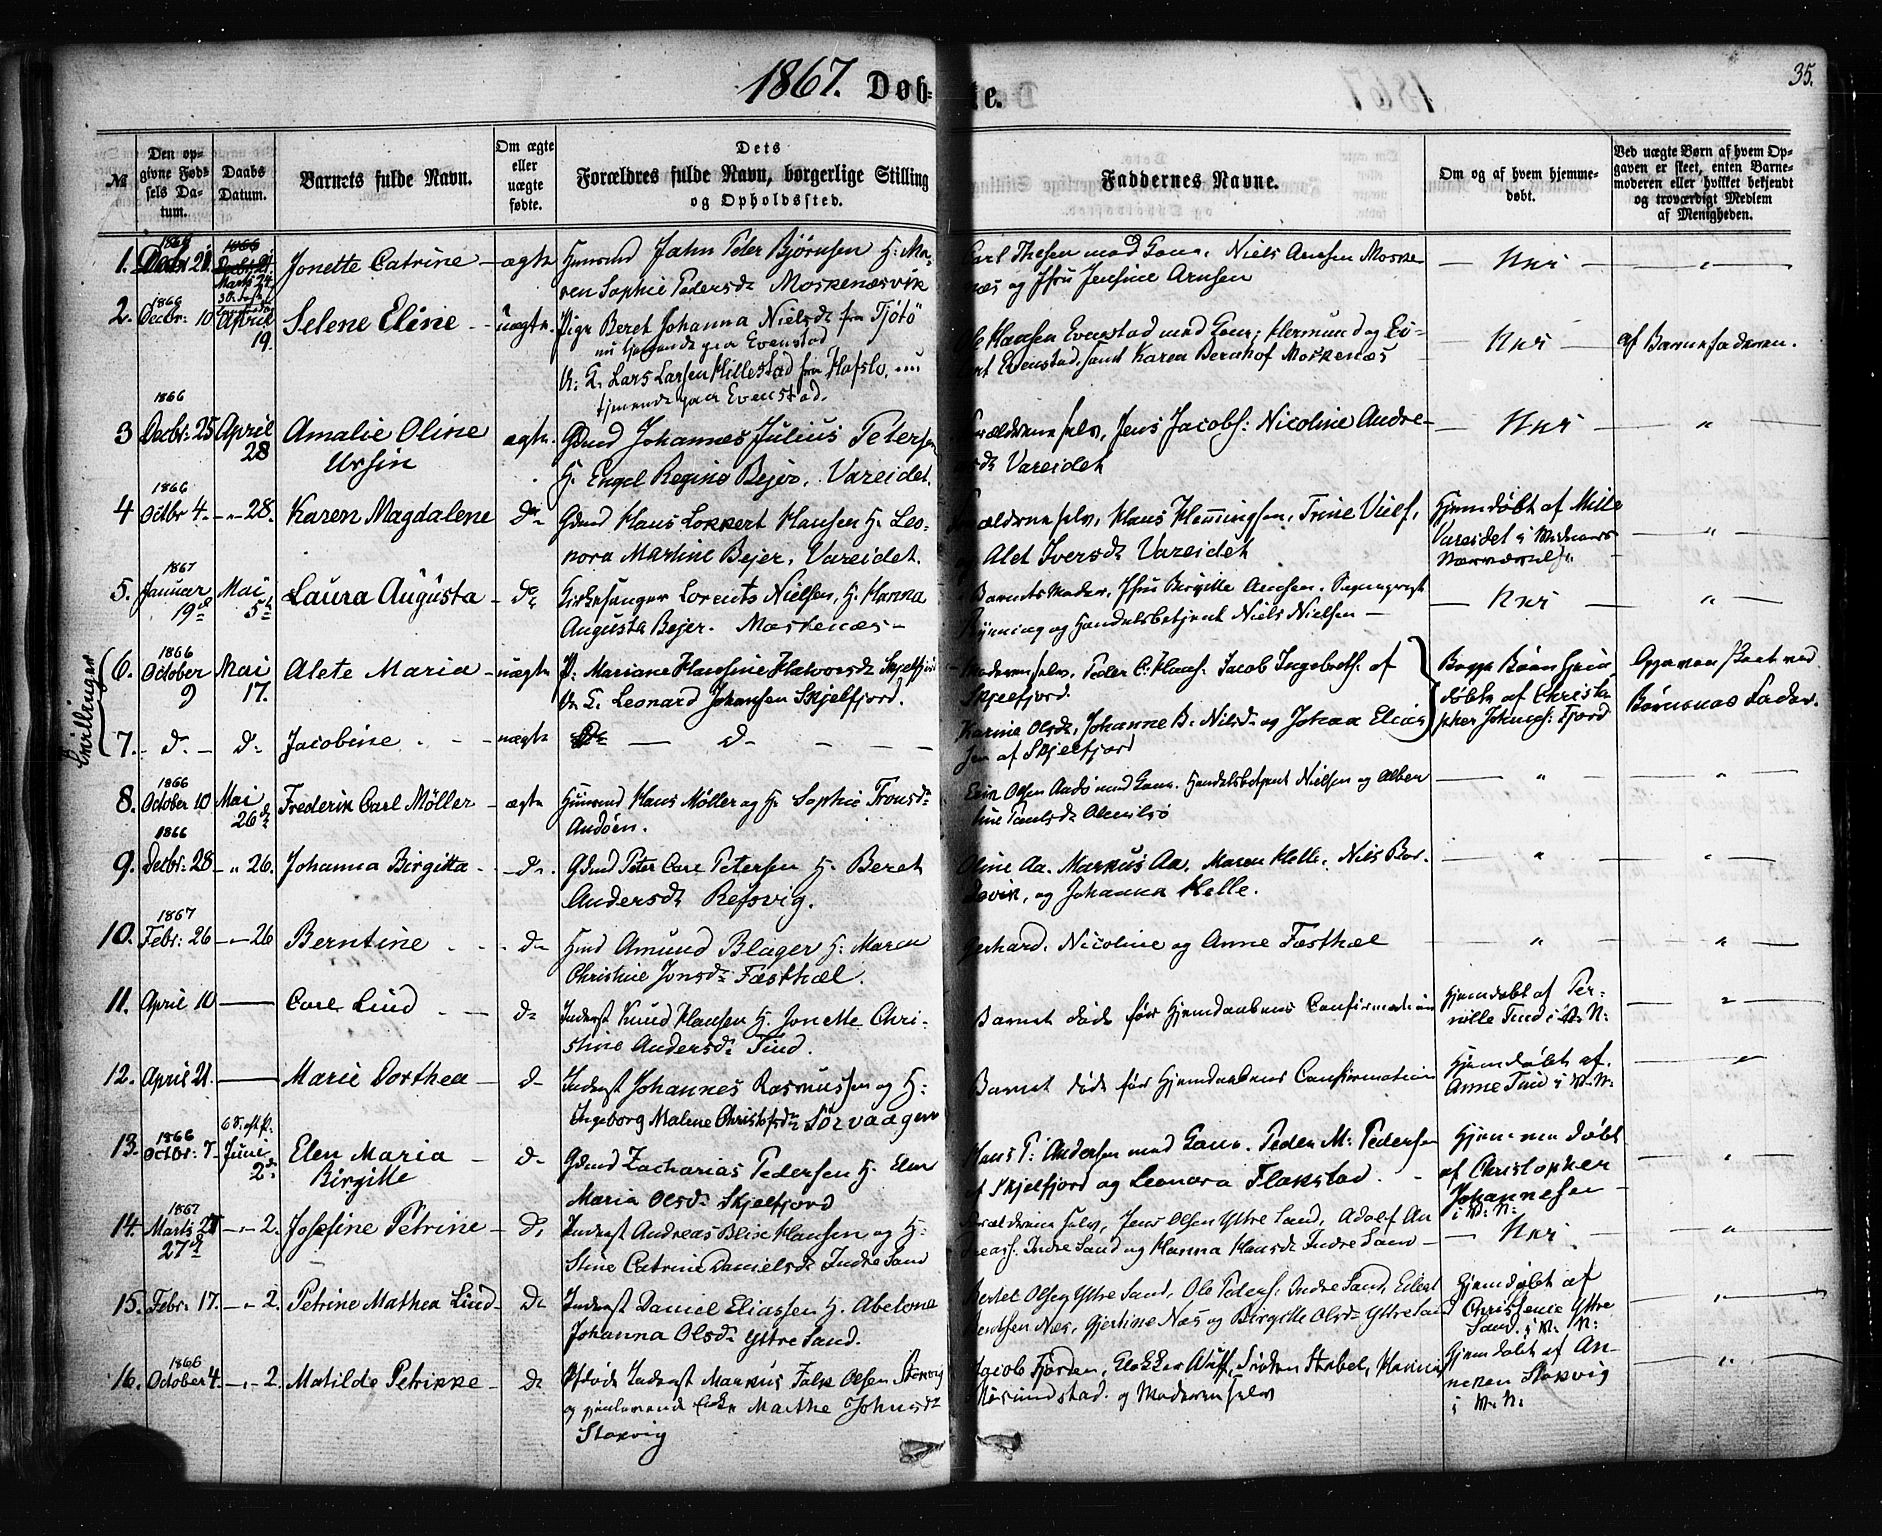 1867. Døb- te. 35.
№
Den op-
givne Fød-
sels Da-
tum.
Daabs
Datum.
Barnets fulde Navn.
Om ægte
eller
uægte
fødte.
Dets
Forældres fulde Navn, borgerlige Stilling
og Opholdssted.
Faddernes Navne.
Om og af hvem hjemme-
døbt.
Ved uægte Børn af hvem Op-
gaven er skeet, enten Barne-
moderen eller hvilket bekjendt
og troværdigt Medlem
af Menigheden.
1. 1866 Decbr 21 Jonette Catrine ægte Huusmd Jahn Peter Bjørnsen H: Ma-
ren Sophie Pedersdr Moskenæsvik
Carl Thesen med Kone, Niels Arnsen Moske
næs og Jfru Jensine Arnsen
2. 1866 Decbr: 10 April 19. Selene Eline uægte Pige Beret Johanna Nielsdr fra Tjøtø
nu tjenende paa Evenstad
U: F. Lars Larsen Hillestad fra Hafslo,
tjenende paa Evenstad.
Ole Hansen Evenstad med Kone; Hermund og Ei-
Evenstad, samt Karen Bernhof Moskenæs
af Barnefaderen.
3 1866 Decbr: 25 April 28 Amalie Oline
Ursin
ægte Gdmd Johannes Julius Petersen
H. Engel Regine Bejer, Vareidet.
Forældrene selv, Jens Jacobs: Nicoline Andre-
Vareidet
4 1866 Octbr 4. 28. Karen Magdalene Do Gdmd Hans Lokkert Hansen H: Leo-
nora Martine Bejer, Vareidet.
Forældrene selv, Hans Hemmingsen, Trine
og Alet Iversdr Vareidet
Hjemdøbt af Mille
Vareidet i Moderens
Nærværelse.
5. 1867 Januar 19de Mai 5te Laura Augusta Do Kirkesanger Lorents Nielsen, H. Hanna
Augusta Bejer. Moskenæs
Barnets Moder, Jfru Birgitte Arnsen,
Rønning og Handelsbetjent Niels Nielsen
Tvillinger
6. 1866 October 9 Mai 17. Alete Maria uægte P: Mariane Hansine Halvorsdr Skjelfjord
U: F. Leonard Johansen Skjelfjord.
Moderen selv, Peder C. Hans: Jacob Ingebrets: af
Skjelfjord.
Begge Børn hjem
døbte af Christo
pher Johans: Fjord
Opgaven skeet ved
Børnenes Fader.
7. d. d. Jacobine uægte D
Karine Olsdr, Johanne B. Nilsdr og Johan Elias
sen af Skjelfjord
8. 1866 October 10 Mai 26de Frederik Carl Møller ægte Huusmd Hans Møller og H: Sophie Tronsdr
Andøen.
Erik Olsen Andø med Kone. Handelsbetjent Nielsen og Alber
tine Paulsdr Olenilsø
9. 1866 Decbr: 28 26. Johanna Birgitta do. Gdmd Peter Carl Petersen H: Beret
Andersdr Refsvig.
Oline Aa. Markus Aa. Maren Helle, Nils Bor-
, og Johanna Helle.
10. 1867 Febr: 26 26 Berntine d Hmd Amund Blager H: Maren
Christine Jonsdr Fæsthæl.
Gerhard. Nicoline og Anne Fæsthæl
11. April 10 Carl Lind d Inderst Knud Hansen H. Jonette Chri-
stine Andersdr Tind.
Barnet døde før Hjemdaabens Confirmation
Hjemdøbt af Per-
nille Tind i M. N:
12. April 21. Marie Dorthea d Inderst Johannes Rasmussen og H:
Ingeborg Malene Christofsdr Sørvaagen
Barnet døde før Hjemdaabens Confirmation
Hjemdøbt af
Anne Tind i M. N:
13. 1866 Octbr: 7 6 S. eft P: Juni 2d Elen Maria
Birgitte
d Gdmd Zacharias Pedersen H. Elen
Maria Olsdr Skjelfjord
Hans P: Andersen med Kone. Peder M: Pedersen
af Skjelfjord og Leonora Flakstad.
Hjemmedøbt
af Christopher
Johannesen
i M. N:
14. 1867 Marts 27de 2. Josefine Petrine D. Inderst Andreas Blix Hansen og H:
Stine Catrine Danielsdr Indre Sand
Forældrene selv, Jens Olsen Yttre Sand, Adolf An
dreas: Indre Sand og Hanna Hansdr Indre Sand
15. Febr: 17. 2. Petrine Mathea Lind D Inderst Daniel Eliassen H. Abelone
Johanna Olsdr Yttre Sand.
Bertel Olsen Yttre Sand, Ole Peders: Indre Sand, Eilert
Bendtsen Næs, Gjertine Næs og Birgitte Olsdr Yttre Sand
Hjemdøbt af
Christence Yttre
Sand. i M. N:
16. 1866 October 4. 2. Matilde Petrikke D Afdøde Inderst Markus Falk Olsen Stokvig
og gjenlevende Enke Marthe Johnsdr
Stokvig
Jacob Fjorden, Stabel, Hanna
og Moderen selv
Hjemdøbt af An-
neken Stokvig
i M. N: